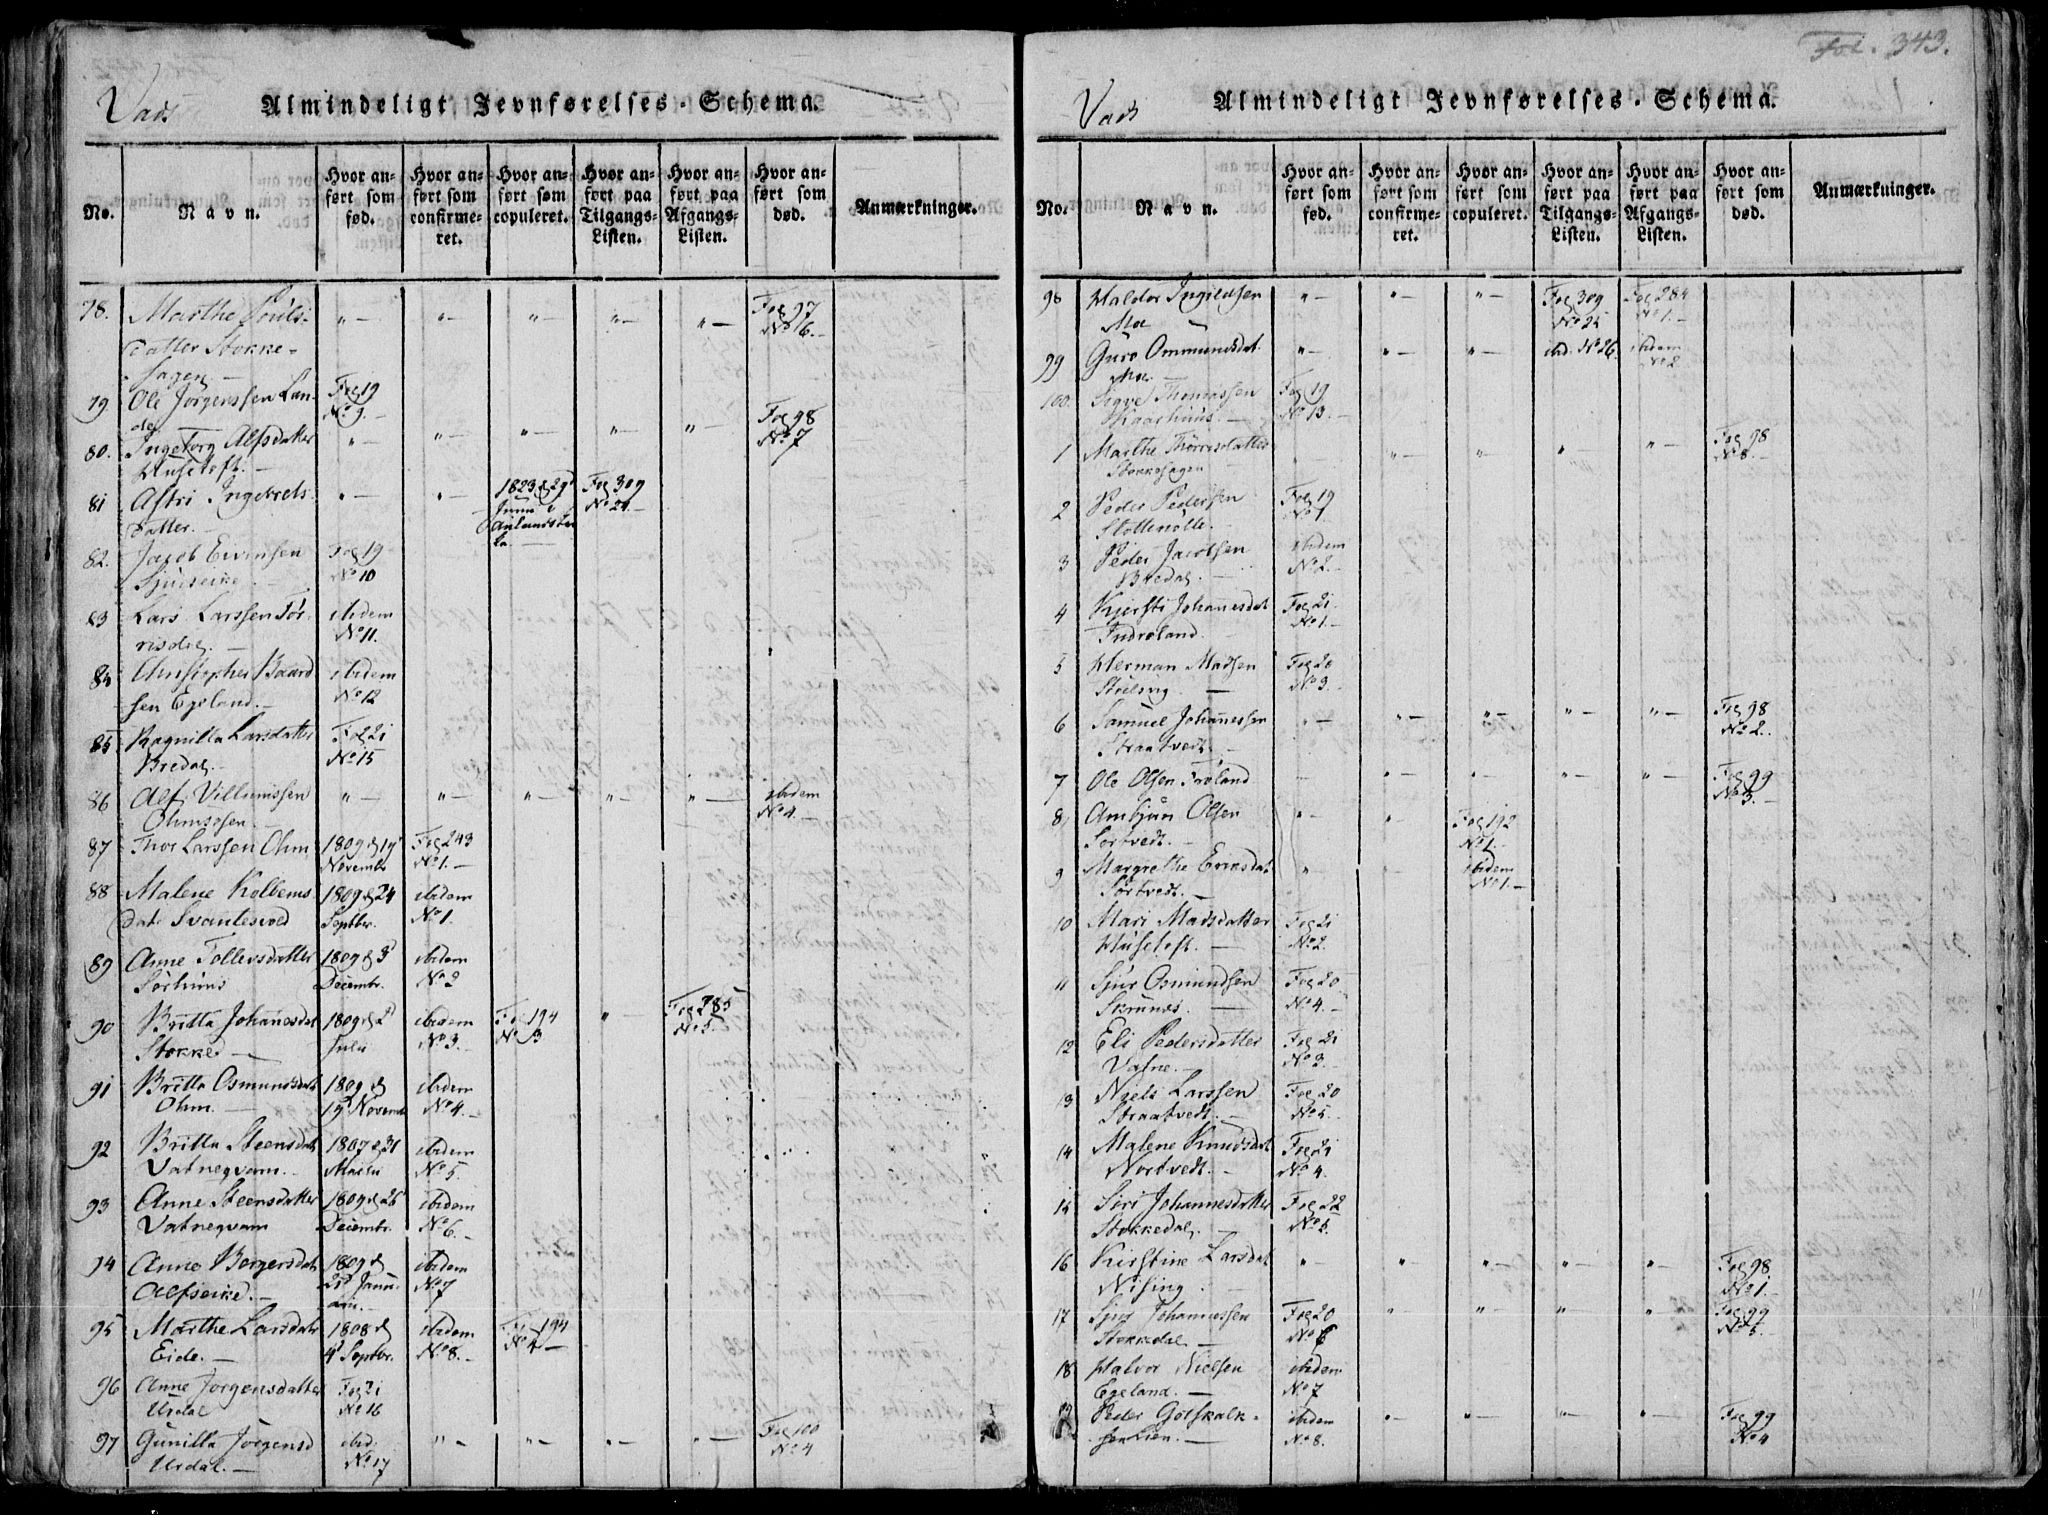 Vads
Almindeligt Jevnførelses-Schema.
No.
Navn.
Hvor anført som fød.
Hvor anført som confirmeret.
Hvor anført som copuleret.
Hvor anført paa Tilgangs-Listen.
Hvor anført paa Afgangs-Listen.
Hvor anført som død.
Anmærkninger.
78. Marthe Pouls- " — " — " — " — " — Fol 97
datter Stokke- No 16. —
hagen —
79 Ole Jørgenssen Lan- Fol 19
de No 9. —
80. Ingeborg Alfsdatter " — " — " — " — " — Fol 98
Huseloft. — No 7
81 Astri Ingebrets- " — " — 1823 d 29d Fol 309
datter. — Junii i No 24. —
82. Jacob Eivensen Fol 19
No 10
83 Lars Larssen Tør- ibidem
risdal. No 11.
84 Christopher Baard ibidem
sen Egeland. — No 12
85 Ragnilla Larsdatter Fol 21
Bredal. — No 15
86 Alf Villumssen " — " — " — " — " — ibidem
No 4. —
87 Thor Larssen Ohm 1809 d 19d Fol 243
November No 1. —
88 Malene Kolbens- 1809 d 24 ibidem
dat. Svantesvold Septbr. No 1.
89 Anne Tollevsdatter 1809 d 3d ibidem
Sørhuus Decembr. No 2
90 Britta Johannesdat 1809 d 2d ibidem Fol 194 " — Fol 285
Stokke — Julii No 3. — No 3 No 5. —
91 Britta Osmundsdat 1809 d ibidem
Ohm. — 19d Novemb No 4. —
92 Britta Steensdat 1807 d 31 ibidem
Vatneqvam. — Martii No 5. —
93 Anne Steensdatter 1809 d 26 ibidem
Vatneqvam Decembr. No 6. —
94 Anne Børgersdat 1809 d ibidem
Alfseike. — 21d Janu- No 7
arii. —
95 Marthe Larsdatr 1808 d ibidem Fol 194
Eide. — 4d Septbr. No 8. — No 4 —
96 Anne Jørgensdatter Fol 21
Urdal No 16
97 Gunilla Jørgensd ibid. " — " — " — " — Fol 100
Urdal. — No 17 No 4
Fol. 343.
Vads
Almindeligt Jevnførelses-Schema.
No.
Navn.
Hvor anført som fød.
Hvor anført som confirmeret.
Hvor anført som copuleret.
Hvor anført paa Tilgangs-Listen.
Hvor anført paa Afgangs-Listen.
Hvor anført som død.
Anmærkninger.
98 Haldor Ingildsen " — " — " — Fol 309 Fol 284
Moe No 25 No 1. —
99 Guro Ommundsdat. " — " — " — ibid. No 26. ibidem
Moe. — No 2
100. Sigve Thomassen Fol 19
Kaarhuus. — No 13. —
1 Marthe Thorrisdatter — " — " — " — " — Fol 98
Stokkehagen No 8. —
2 Peder Pedersen Fol 19
No 1
3 Peder Jacobsen ibidem
Bredal. — No 2. —
4 Kjersti Johannesdat Fol 21.
Indreland. No 1. —
5 Herman Madsen Fol 20
No 3. —
6 Samuel Johannessen " — " — " — " — " — Fol 98
Straatvedt. — No 2.
7 Ole Olsen Frøland — " — " — " — " — Fol 99
No 3. —
8 Ambjøn Olsen " — " Fol 192
Sørtvedt. — No 1. —
9 Margrethe Eriksdat " ibidem
Sørtvedt. — No 1. —
10 Mari Madsdatter Fol 21
Huseloft. — No 2.
11 Sjur Osmundsen Fol 20
No 4. —
12 Eli Pedersdatter Fol 21
Vatne. — No 3. —
13 Niels Larssen Fol 20
Straatvedt. — No 5. —
14 Malene Knudsdat Fol 21
Nortvedt. — No 4. —
15 Siri Johannesdatter Fol 22
Stokkedal. — No 5. —
16 Kirstine Larsdat " — " — " — " — " — Fol 98
Nising. — No 1. —
17 Sjur Johannessen Fol 20 " — " — " — " Fol 99
Stokkedal — No 6 No 5. —
18 Halvor Nielsen ibidem
Egeland. — No 7
19 Peder Gotskalk- ibidem " — " — " — " — Fol 99
sen Lien. — No 8. No 4